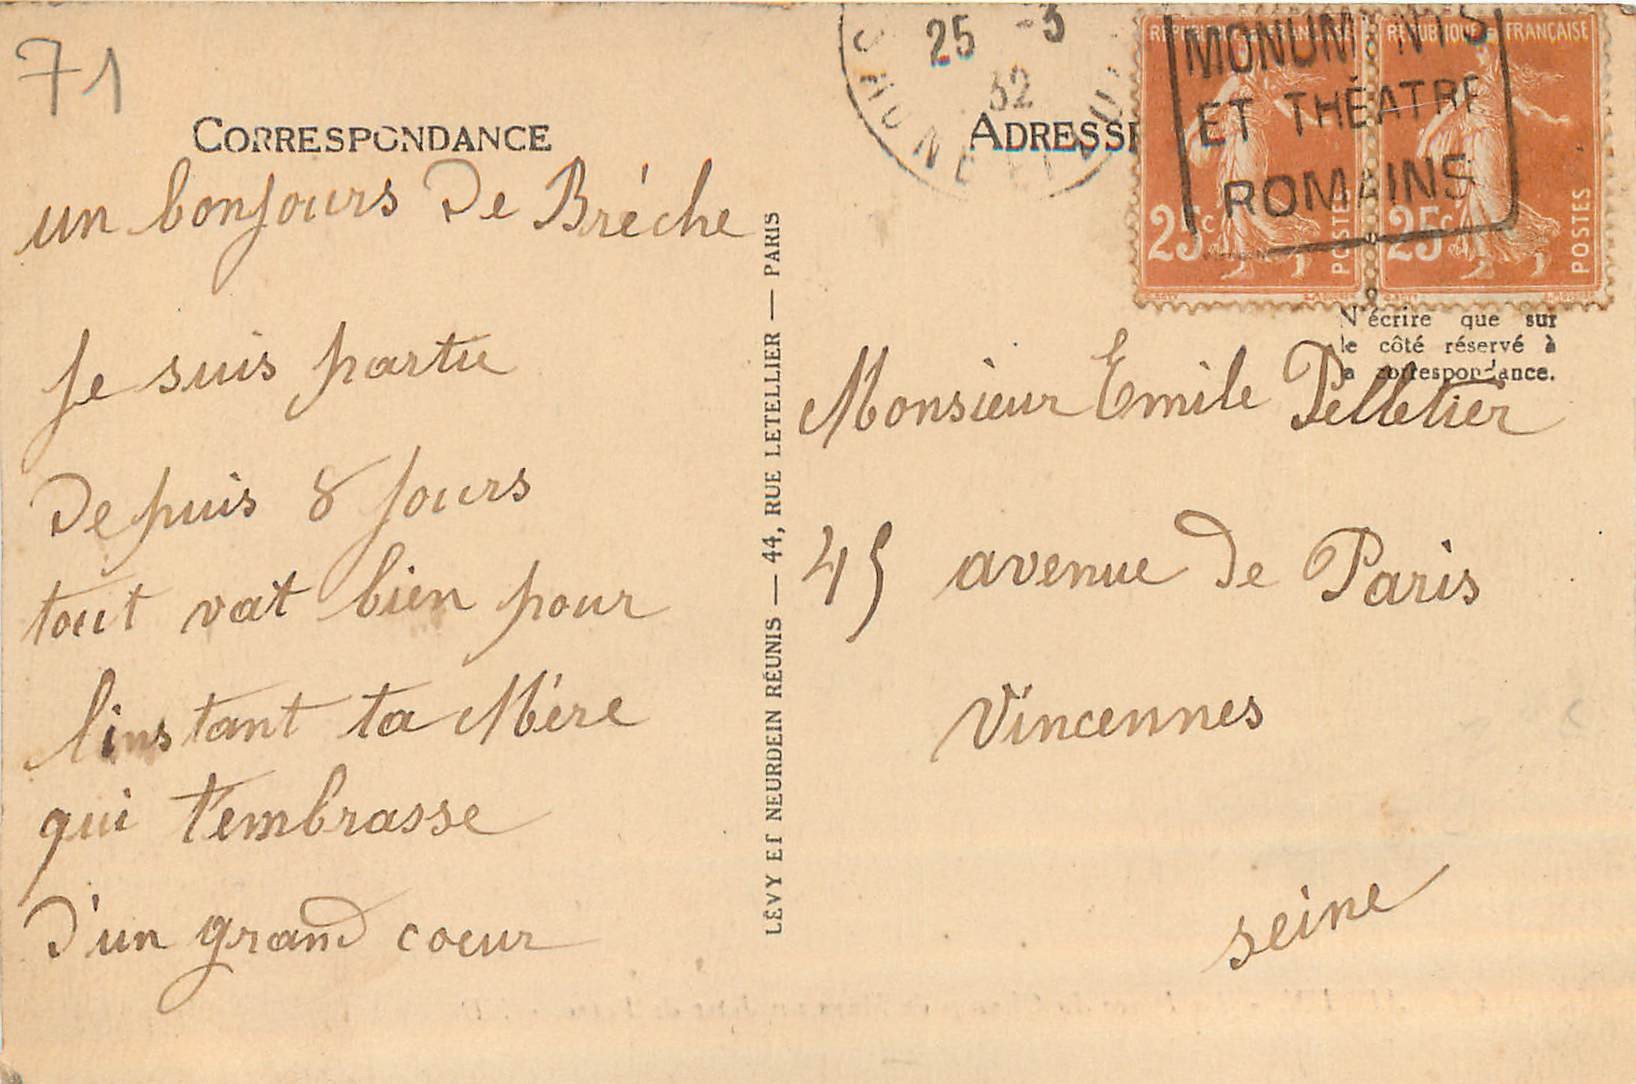 71
CORRESPONDANCE
un bonjours De Bréche
Je suis partie
Depuis 8 Jours
tout vat bien pour
linstant ta Mére
qui t'embrasse
D'un grand coeur
LÉVY ET NEURDEIN RÉUNIS — 44, RUE LETELLIER — PARIS
25 -3
32
SAONE ET
ADRESSE
MONUMENTS
ET THÉATRE
ROMAINS
REPUBLIQUE FRANÇAISE
25c
POSTES
REPUBLIQUE FRANÇAISE
25c
POSTES
N'écrire que sur
le côté réservé à
la correspondance.
Monsieur Emile Pelletier
45 avenue De Paris
Vincennes
seine